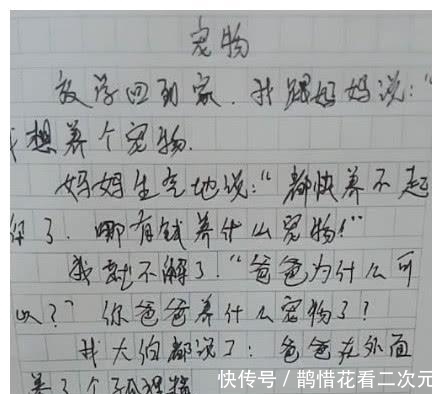 宠物
放学回到家.我跟妈妈说:“
我想养个宠物.
妈妈生气地说:“都快养不起
你了.哪有钱养什么宠物!”
我就不解了.“爸爸为什么可
以?”你爸爸养什么宠物了?
我大伯都说了:爸爸在外面
养了个狐狸精
快传号/鹊惜花看二次元